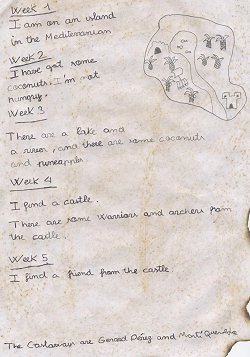 Week 1
I am on an island
in the Mediterranean
Week 2
I have got some
coconuts. I'm not
hungry.
Week 3
There are a lake and
a river, and there are some coconuts
and pineapples
Week 4
I find a castle.
There are some warriors and archers from
the castle.
Week 5
I find a friend from the castle.
The are Gerard Pérez and Martí